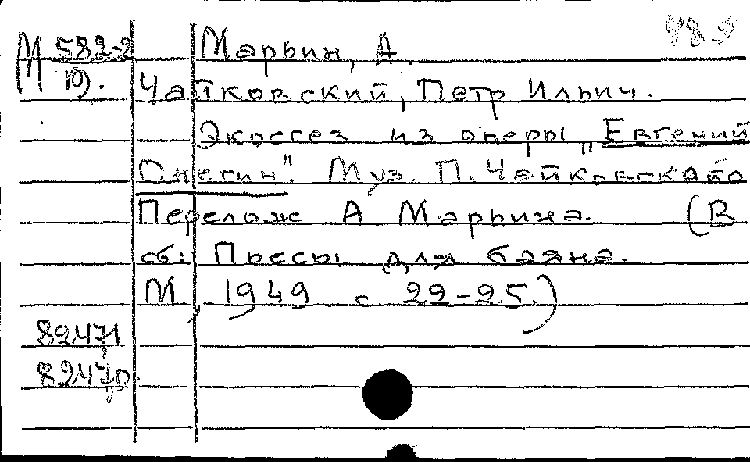 М 582-2 Марьин, А.
19). Чайковский, Петр Ильич.
Экоссез из оперы „Евгений
Онегин". Муз. П. Чайковского
Перелож А Марьина. (В
сб: Пьесы для баяна.
М, 1949 с 22-25)
82471
82470